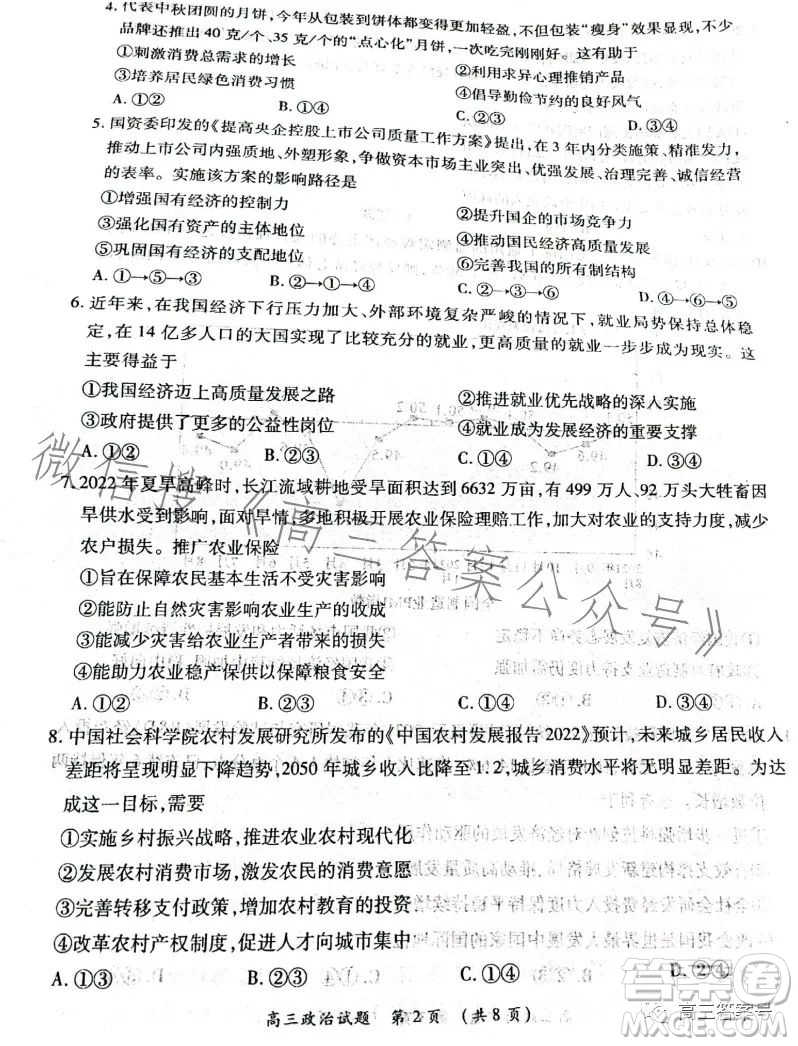 4. 代表中秋团圆的月饼,今年从包装到饼体都变得更加轻盈,不但包装“瘦身”效果显现,不少
店家还推出 40 克/个、35 克/个的“点心化”月饼,一次吃完刚刚好。这有助于
①刺激消费总需求的增长 ②利用求异心理推销产品
③培养居民绿色消费习惯 ④倡导勤俭节约的良好风气
A. ①② B. ①④ C. ②③ D. ③④
5. 国资委印发的《提高央企控股上市公司质量工作方案》提出,在 3 年内分类施策、精准发力,
推动上市公司内强质地、外塑形象,争做资本市场主业突出、优强发展、治理完善、诚信经营
的表率。实施该方案的影响路径是
①增强国有经济的控制力 ②提升国企的市场竞争力
③强化国有资产的主体地位 ④推动国民经济高质量发展
⑤巩固国有经济的支配地位 ⑥完善我国的所有制结构
A. ①→⑤→③ B. ②→①→④ C. ②→③→⑥ D. ④→⑥→⑤
6. 近年来,在我国经济下行压力加大、外部环境复杂严峻的情况下,就业局势保持总体稳
定,在 14 亿多人口的大国实现了比较充分的就业,更高质量的就业一步步成为现实。这
主要得益于
①我国经济迈上高质量发展之路 ②推进就业优先战略的深入实施
③政府提供了更多的公益性岗位 ④实体经济发展的重要支撑
A. ①② B. ①③ C. ②④ D. ③④
7. 2022 年夏旱高峰时,长江流域耕地受旱面积达到 6632 万亩,有 499 万人、92 万头大牲畜因
旱供水受到影响,面对旱情,多地积极开展农业保险理赔工作,加大对农业的支持力度,减少
农户损失。推广农业保险
①旨在保障农民基本生活不受灾害影响
②能防止自然灾害影响农业生产的收成
③能减少灾害给农业生产者带来的损失
④能助力农业稳产保供以保障粮食安全
A. ①② B. ①③ C. ②④ D. ③④
8. 中国社会科学院农村发展研究所发布的《中国农村发展报告 2022》预计,未来城乡居民收入
差距将呈现明显下降趋势,2050 年城乡收入比降至 1.2,城乡消费水平将无明显差距。为达
成这一目标,需要
①实施乡村振兴战略,推进农业农村现代化
②发展农村消费市场,激发农民的消费意愿
③完善转移支付政策,增加农村教育的投资
④改革农村产权制度,促进人才向城市集中
A. ①③ B. ①④ C. ②③ D. ②④
高三政治试题 第 2 页 (共 8 页)
微信搜《高三答案公众号》
答案卷
高三答案号